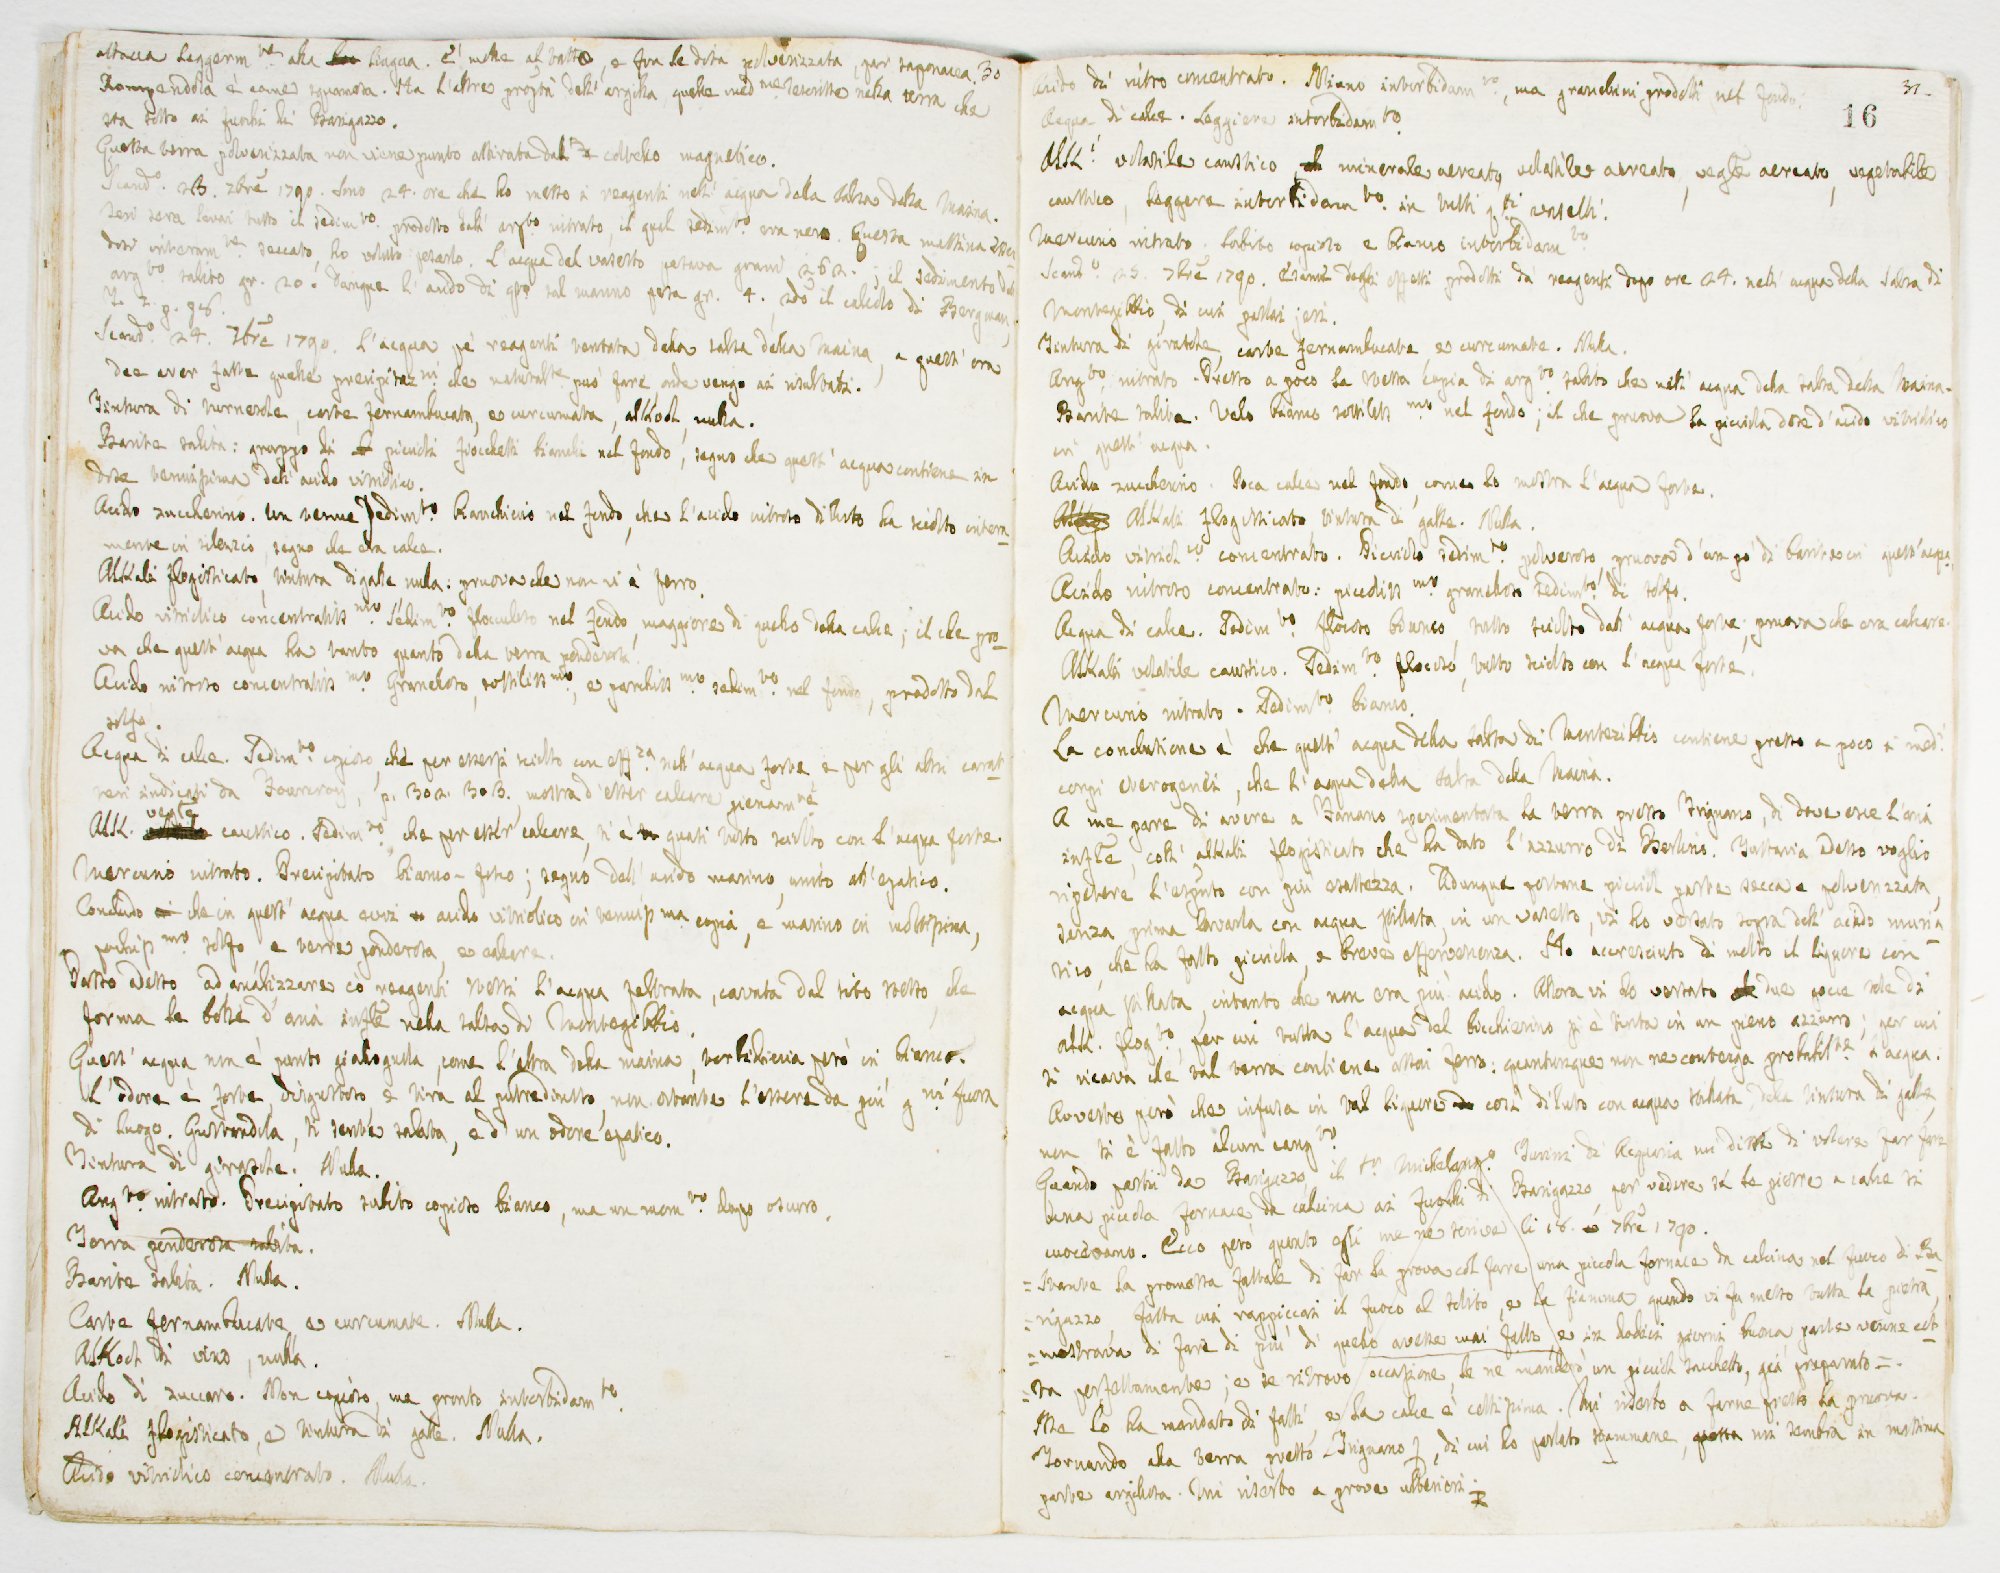 attacca leggerm.te alla lingua. È molle al tatto, e fra le dita polverizzata, par saponacea. 30
Rompendola è come squamosa. Ha l'altre propr.tà dell'argilla, quelle med.me descritte nella terra che
sta sotto ai fuochi di Barigazzo.
Questa terra polverizzata non viene punto attirata dal coltello magnetico.
Scand.o 23. 7bre 1790. Sono 24. ore che ho messo i reagenti nell'acqua della salsa della Maina.
Jeri sera levai tutto il sedim.to prodotto dall'arg.to nitrato, il qual sedim.to era nero. Questa mattina
interam.te seccato, ho voluto pesarlo. L'acqua del vasetto pesava grani 262.; il sedimento
arg.to salito gr. 20. Dunque l'acido di sal marino pesa gr. 4., 2do il calcolo di Bergman,
T. 2. p. 96.
Scand.o 24. 7bre 1790. L'acqua pe' reagenti tentata della salsa della Maina, a quest'ora
dee aver fatte quelle precipitaz.ni che naturalte può fare onde vengo ai risultati.
Tintura di tornesole, carte fernambucata, e curcumata, alkool, nulla.
Barite salita: groppo di piccioli fiocchetti bianchi nel fondo, segno che quest'acqua contiene in
dose tenuissima dell'acido vitriolico.
Acido zuccherino. Un tenue sedim.to bianchiccio nel fondo, che l'acido nitroso diluto ha sciolto intera-
mente in silenzio, segno che era calce.
Alkali flogisticato, tintura di galle nulla: pruova che non vi è ferro.
Acido vitriolico concentratiss.mo Sedim.to flocculoso nel fondo, maggiore di quello della calce; il che pro-
va che quest'acqua ha tanto quanto della terra ponderosa.
Acido nitroso concentratiss.mo Granelloso, sottiliss.mo, e parchiss.mo sedim.to nel fondo, prodotto dal
solfo.
Acqua di calce. Sedim.to copioso, che per essersi sciolto con eff.za nell'acqua forte e per gli altri carat-
teri indicati da Fourcroy, p. 302. 303. mostra d'esser calcare pienam.te
Alk. vegle caustico. Sedim.to, che per esser calcare, si è quasi tutto sciolto con l'acqua forte.
Mercurio nitrato. Precipitato bianco-fosco; segno dell'acido marino unito all'epatico.
Concludo che in quest'acqua evvi acido vitriolico in tenuiss.ma copia, e marino in moltissima,
pochiss.mo solfo e terre ponderosa, e calcare.
Passo adesso ad analizzare co' reagenti stessi l'acqua feltrata, cavata dal sito stesso, che
forma le bolle d'aria infle nella salsa di Montegibbio.
Quest'acqua non è punto gialognola, come l'altra della maina, torbidiccia però in bianco.
L'odore è forte, disgustoso e tira al putredinoso, non ostante l'essere da più g.ni fuori
di luogo. Gustandola, si sente salata, e d'un odore epatico.
Tintura di girasole. Nulla.
Arg.to nitrato. Precipitato subito copioso bianco, ma un mom.to dopo oscuro.
Terra ponderosa salita.
Barite salita. Nulla.
Carte fernambucate e curcumate. Nulla.
Alkool di vino, nulla.
Acido di zuccaro. Non copioso, ma pronto intorbidam.to
Alkali flogisticato, e tintura di galle. Nulla.
Acido vitriolico concentrato. Nulla.
31.
16
Acido di nitro concentrato. Niuno intorbidam.to, ma granellini prodotti nel fondo.
Acqua di calce. Leggiero intorbidam.to
Alk.i volatile caustico, minerale aereato, volatile aereato, vegle aereato, vegetabile
caustico, leggere intorbidam.to in tutti q.ti vaselli.
Mercurio nitrato. Subito copioso e bianco intorbidam.to
Scand.o 25. 7bre 1790. Esame degli effetti prodotti da' reagenti dopo ore 24. nell'acqua della Salsa di
Montegibbio, di cui parlai jeri.
Tintura di girasole, carte fernambucate e curcumate. Nulla.
Arg.to nitrato. Presso a poco la stessa copia di arg.to salito che nell'acqua della salsa della Maina.
Barite salita. Velo bianco sottiliss.mo nel fondo; il che pruova la piccola dose d'acido vitriolico
in quest'acqua.
Acido zuccherino. Poca calce nel fondo, come lo mostra l'acqua forte.
Alkali flogisticato tintura di galle. Nulla.
Acido vitriol.co concentrato. Picciolo sedim.to polveroso, pruova d'un po' di barite in quest'acqua.
Acido nitroso concentrato: piccioliss.mo granelloso sedim.to di solfo.
Acqua di calce. Sedim.to fioccoso bianco, tutto sciolto dall'acqua forte; pruova che era calcare.
Alkali volatile caustico. Sedim.to floccoso, tutto sciolto con l'acqua forte.
Mercurio nitrato. Sedim.to bianco.
La conclusione è che quest'acqua della salsa di Montegibbio contiene presso a poco i med.i
corpi eterogenei, che l'acqua della salsa della Maina.
A me pare di avere a Fanano sperimentata la terra presso Trignano, di dove esce l'aria
infle, coll'alkali flogisticato che ha dato l'azzurro di Berlino. Tuttavia adesso voglio
ripetere l'esp.to con più esattezza. Adunque portane picciol parte secca e polverizzata,
senza prima lavarla con acqua stillata, in un vasetto, vi ho versato sopra dell'acido muria-
tico, che ha fatto picciola, e breve effervescenza. Ho accresciuto di molto il liquore con
acqua stillata, intanto che non era più acido. Allora vi ho versato due gocce sole di
alk. flog.to, per cui tutta l'acqua del bicchierino si è tinta in un pieno azzurro; per cui
si ricava che tal terra contiene assai ferro: quantunque non ne contenga probabilte l'acqua.
Avverto però che infusa in tal liquore così diluto con acqua stillata della tintura di galle,
non si è fatto alcun cang.to
Quando partii da Barigazzo, il Sr. Michelang.o Turini di Acquaria mi disse di volere far fare
una piccola fornace da calcina ai fuochi di Barigazzo per vedere se le pietre a calce si
cuocevano. Ecco però quanto egli me ne scrive li 18. 7bre 1790.
= Stante la promessa fattale di far la prova col fare una piccola fornace da calcina nel fuoco di Ba-
= rigazzo fatta cui rappiccari il fuoco al solito, e la fiamma quando vi fu messo tutta la pietra,
= mostrava di fare di più di quello avesse mai fatto e in dodici giorni buona parte venne cot-
= ta perfettamente; e se ritrovo occasione, le ne manderò un picciol sacchetto, già preparato =.
Me lo ha mandato di fatti, e la calce è cottissima. Mi riserbo a farne presto la pruova.
Tornando alla terra presso Trignano, di cui ho parlato stammane, mi sembra in massima
parte argillosa. Mi riserbo a prove ulteriori.